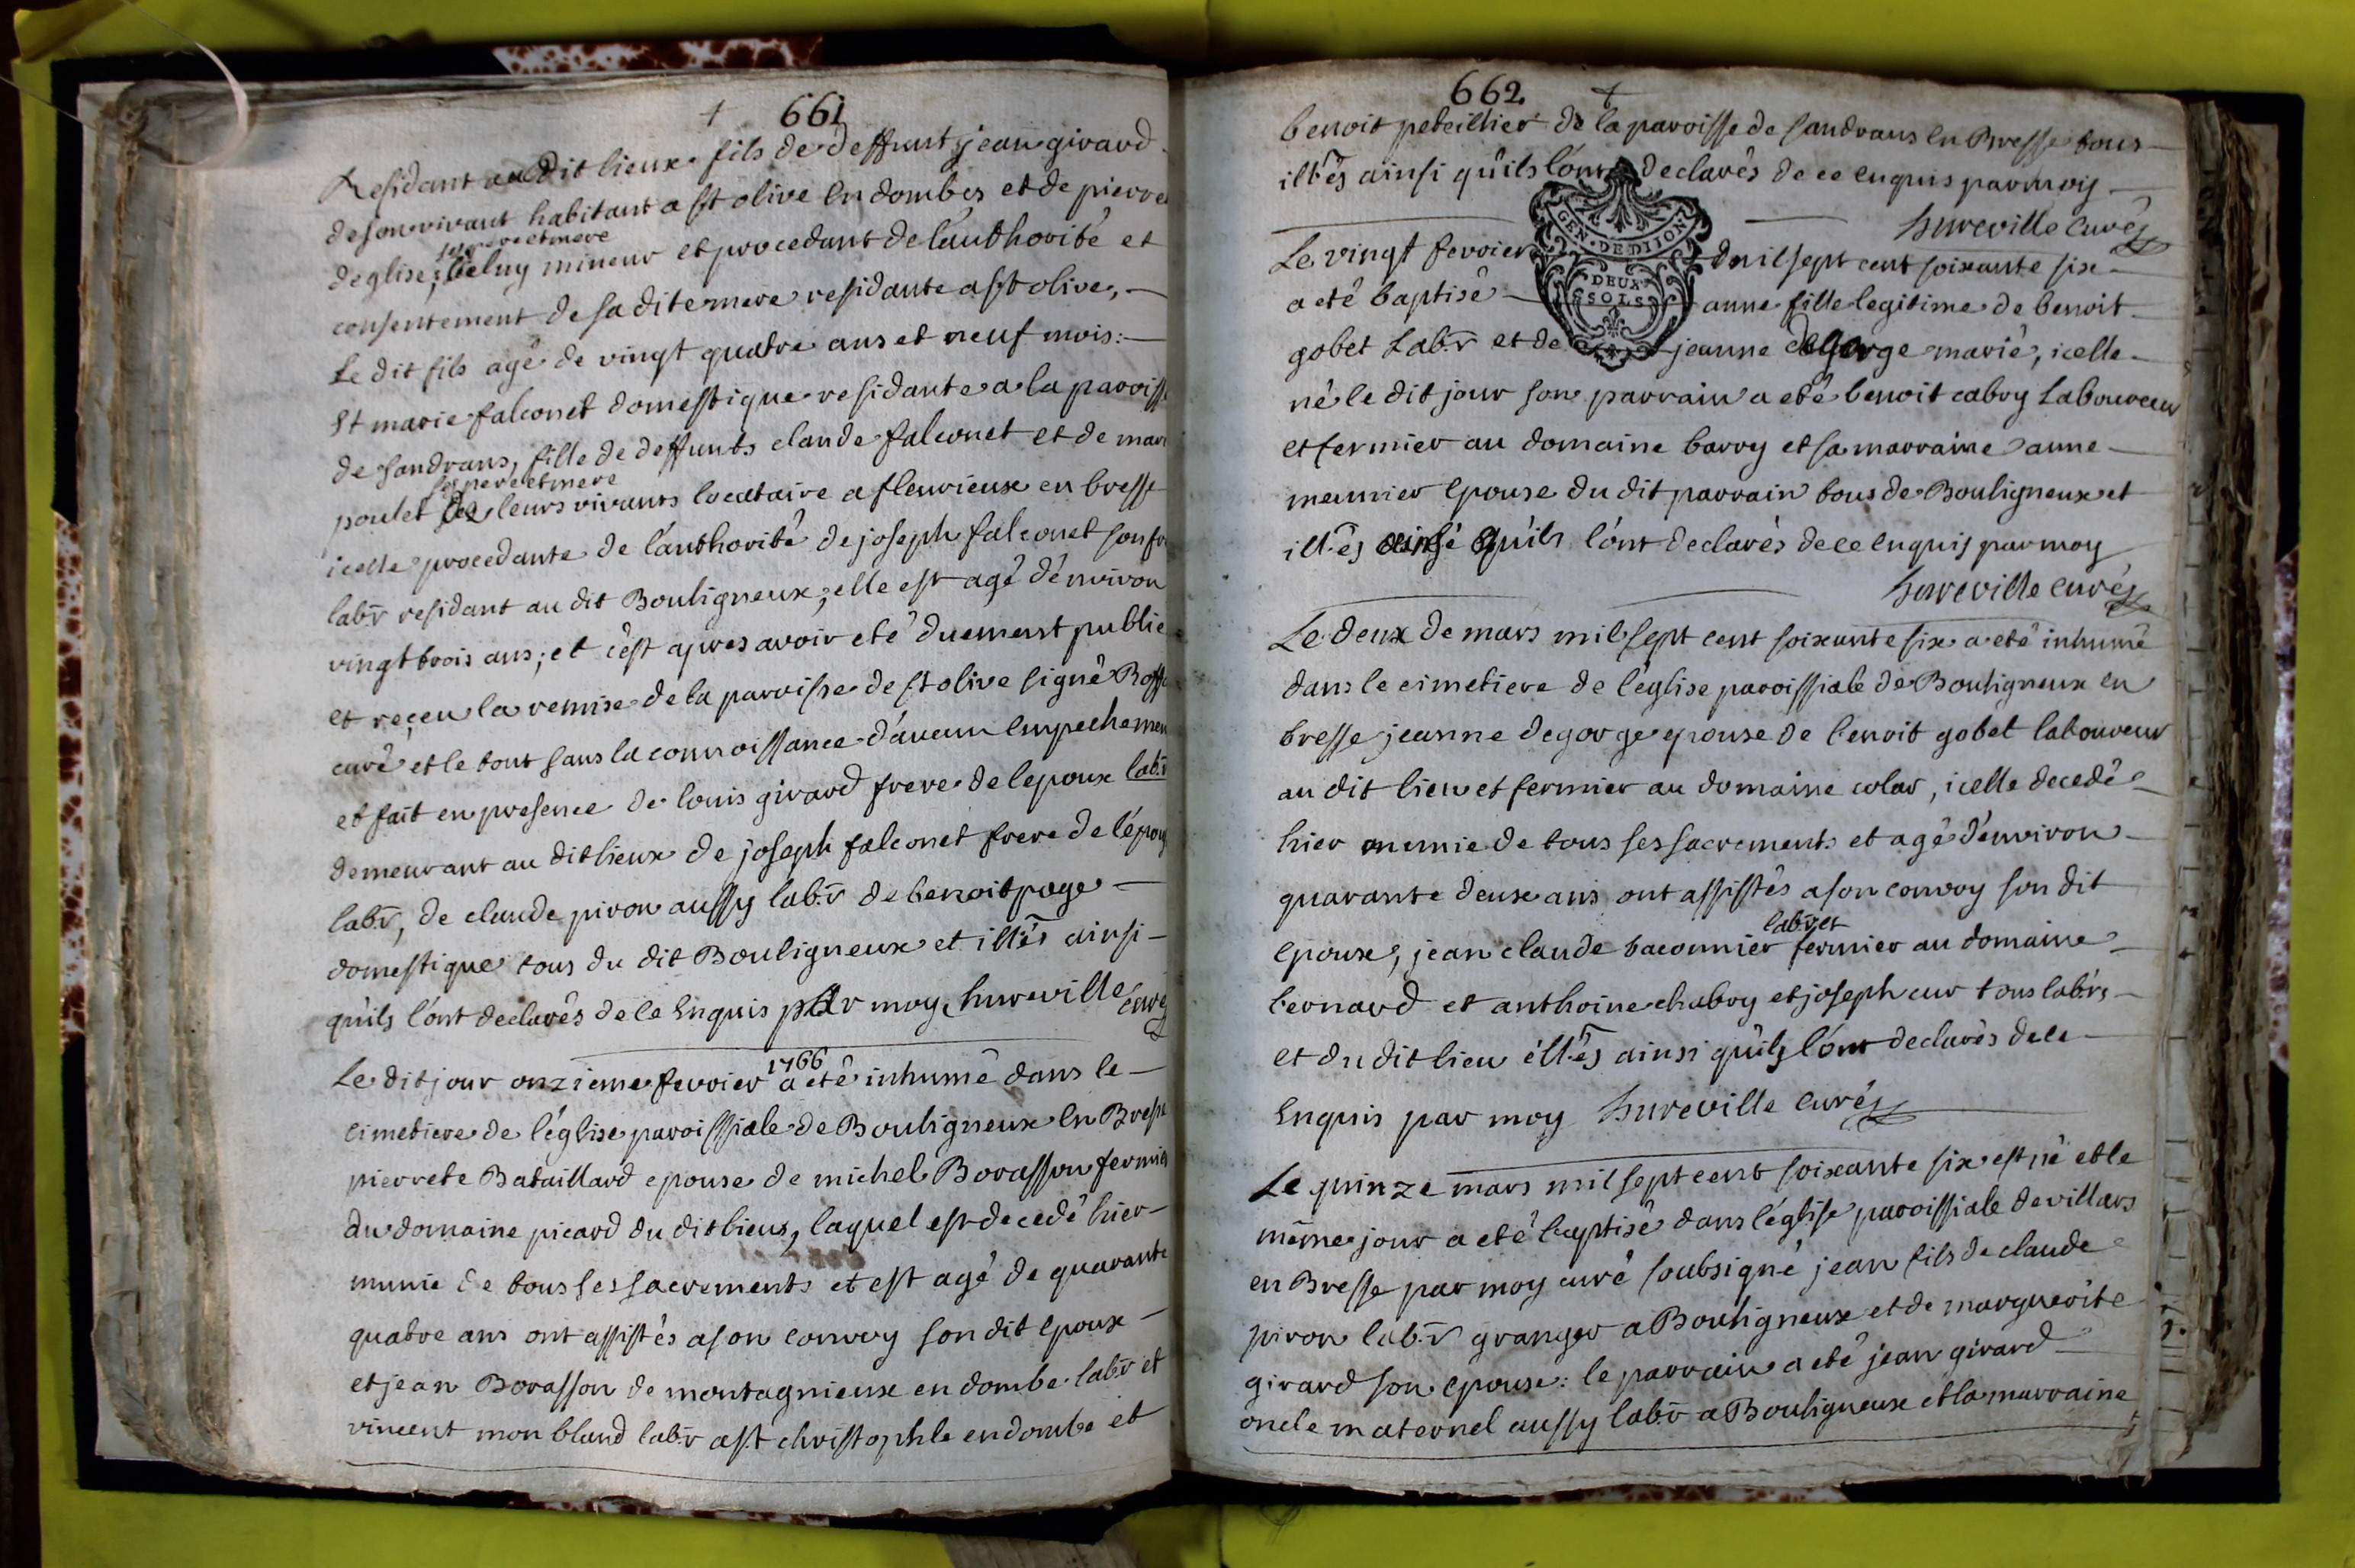 661
Residant au dit lieux fils de deffunt jean girard
de son vivant habitant a st olive en dombes et de pierre
ses pere et mere
deglise; iceluy mineur et procedant de l'authorité et
consentement de sa dite mere residante a st olive,
Le dit fils agé de vingt quatre ans et neuf mois:
Et marie falconet domestique residante a la paroisse
de sandrans, fille de deffunts claude falconet et de mari
ses pere et mere
poulet de leurs vivants locataire a fleurieux en bresse
icelle procedante de l'authorité de joseph falconet son fr
labr residant au dit Bouligneux; elle est agé d'environ
vingt trois ans; et c'est apres avoir eté duement publié
et reçeu la remise de la paroisse de st olive signé
curé et le tout sans la connoissance d'aucun empechemen
et fait en presence de louis girard frere de lepoux labr
demeurant au dit lieux de joseph falconet frere de l'épou
labr, de claude piron aussy labr de benoit page
domestique tous du dit Bouligneux et illés ainsi
qu'ils l'ont declarés de ce Enquis par moy hureville curé
1766
Le dit jour onzieme fevrier a eté inhumé dans le
cimetiere de l'église paroissiale de Bouligneux en Bresse
pierrete Bataillard epouse de michel Borasson fermier
du domaine picard du dit lieux, laquel est decedé hier
munie de tous ses sacrements et est agé de quarante
quatre ans ont assistés a son convoy son dit epoux
et jean Borasson de montagnieux en dombe labr et
vincent mon bland labr a st christophle en dombe et
662
benoit peteillier de la paroisse de sandrans en Bresse tous
illés ainsi qu'ils l'ont declarés de ce enquis par moy
hureville curé
GEN · DE DIJON
DEUX
SOLS
Le vingt fevrier mil sept cent soixante six
a eté baptisé anne fille legitime de benoit
gobet Labr et de jeanne degorge marié, icelle
né le dit jour son parrain a eté benoit cabry Laboureur
et fermier au domaine barry et sa marraine anne
meunier epouse du dit parrain tous de Bouligneux et
illés ainsi qu'ils l'ont declarés de ce enquis par moy
hureville curé
Le deux de mars mil sept cent soixante six a eté inhumé
dans le cimetiere de l'église paroissiale de Bouligneux en
bresse jeanne degorge epouse de benoit gobet laboureur
au dit lieu et fermier au domaine colar, icelle decedé
hier munie de tous ses sacrements et agé d'environ
quarante deux ans ont assistés a son convoy son dit
labr et
epoux, jean claude baconnier fermier au domaine
bernard et anthoine chabry et joseph cur tous labrs
et du dit lieu illés ainsi qu'ils l'ont declarés de ce
Enquis par moy hureville curé
Le quinze mars mil sept cent soixante six est né et le
même jour a eté baptisé dans l'église paroissiale de villars
en Bresse par moy curé soubsigné jean fils de claude
piron labr granger a Bouligneux et de marguerite
girard son epouse: le parrain a eté jean girard
oncle maternel aussy labr a Bouligneux et la marraine